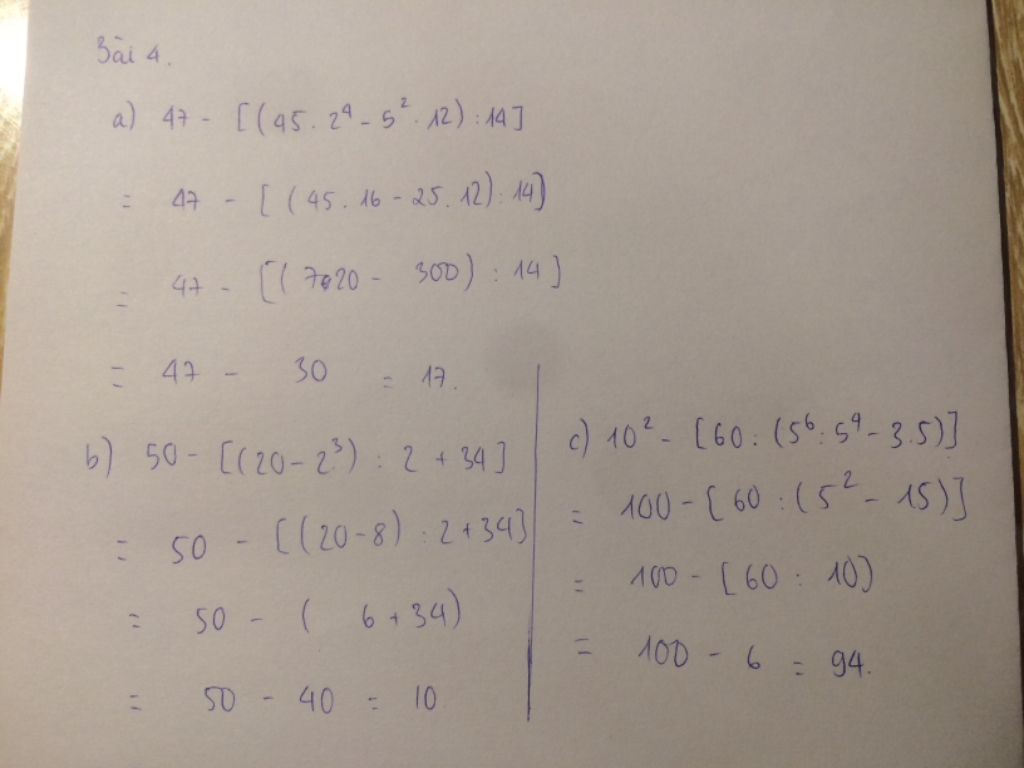 Bài 4.
a) 47 - [(45 . 2⁴ - 5² . 12) : 14]
= 47 - [(45 . 16 - 25 . 12) : 14]
= 47 - [(720 - 300) : 14]
= 47 - 30 = 17.
b) 50 - [(20 - 2³) : 2 + 34]
= 50 - [(20 - 8) : 2 + 34]
= 50 - ( 6 + 34)
= 50 - 40 = 10
c) 10² - [60 : (5⁶ : 5⁴ - 3.5)]
= 100 - [60 : (5² - 15)]
= 100 - [60 : 10)
= 100 - 6 = 94.